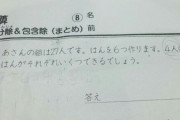 算 8 名
分除&包含除(まとめ)前
あさんの組は27人です。はんを6つ作ります。4人
はんがそれぞれいくつできるでしょう。
答え